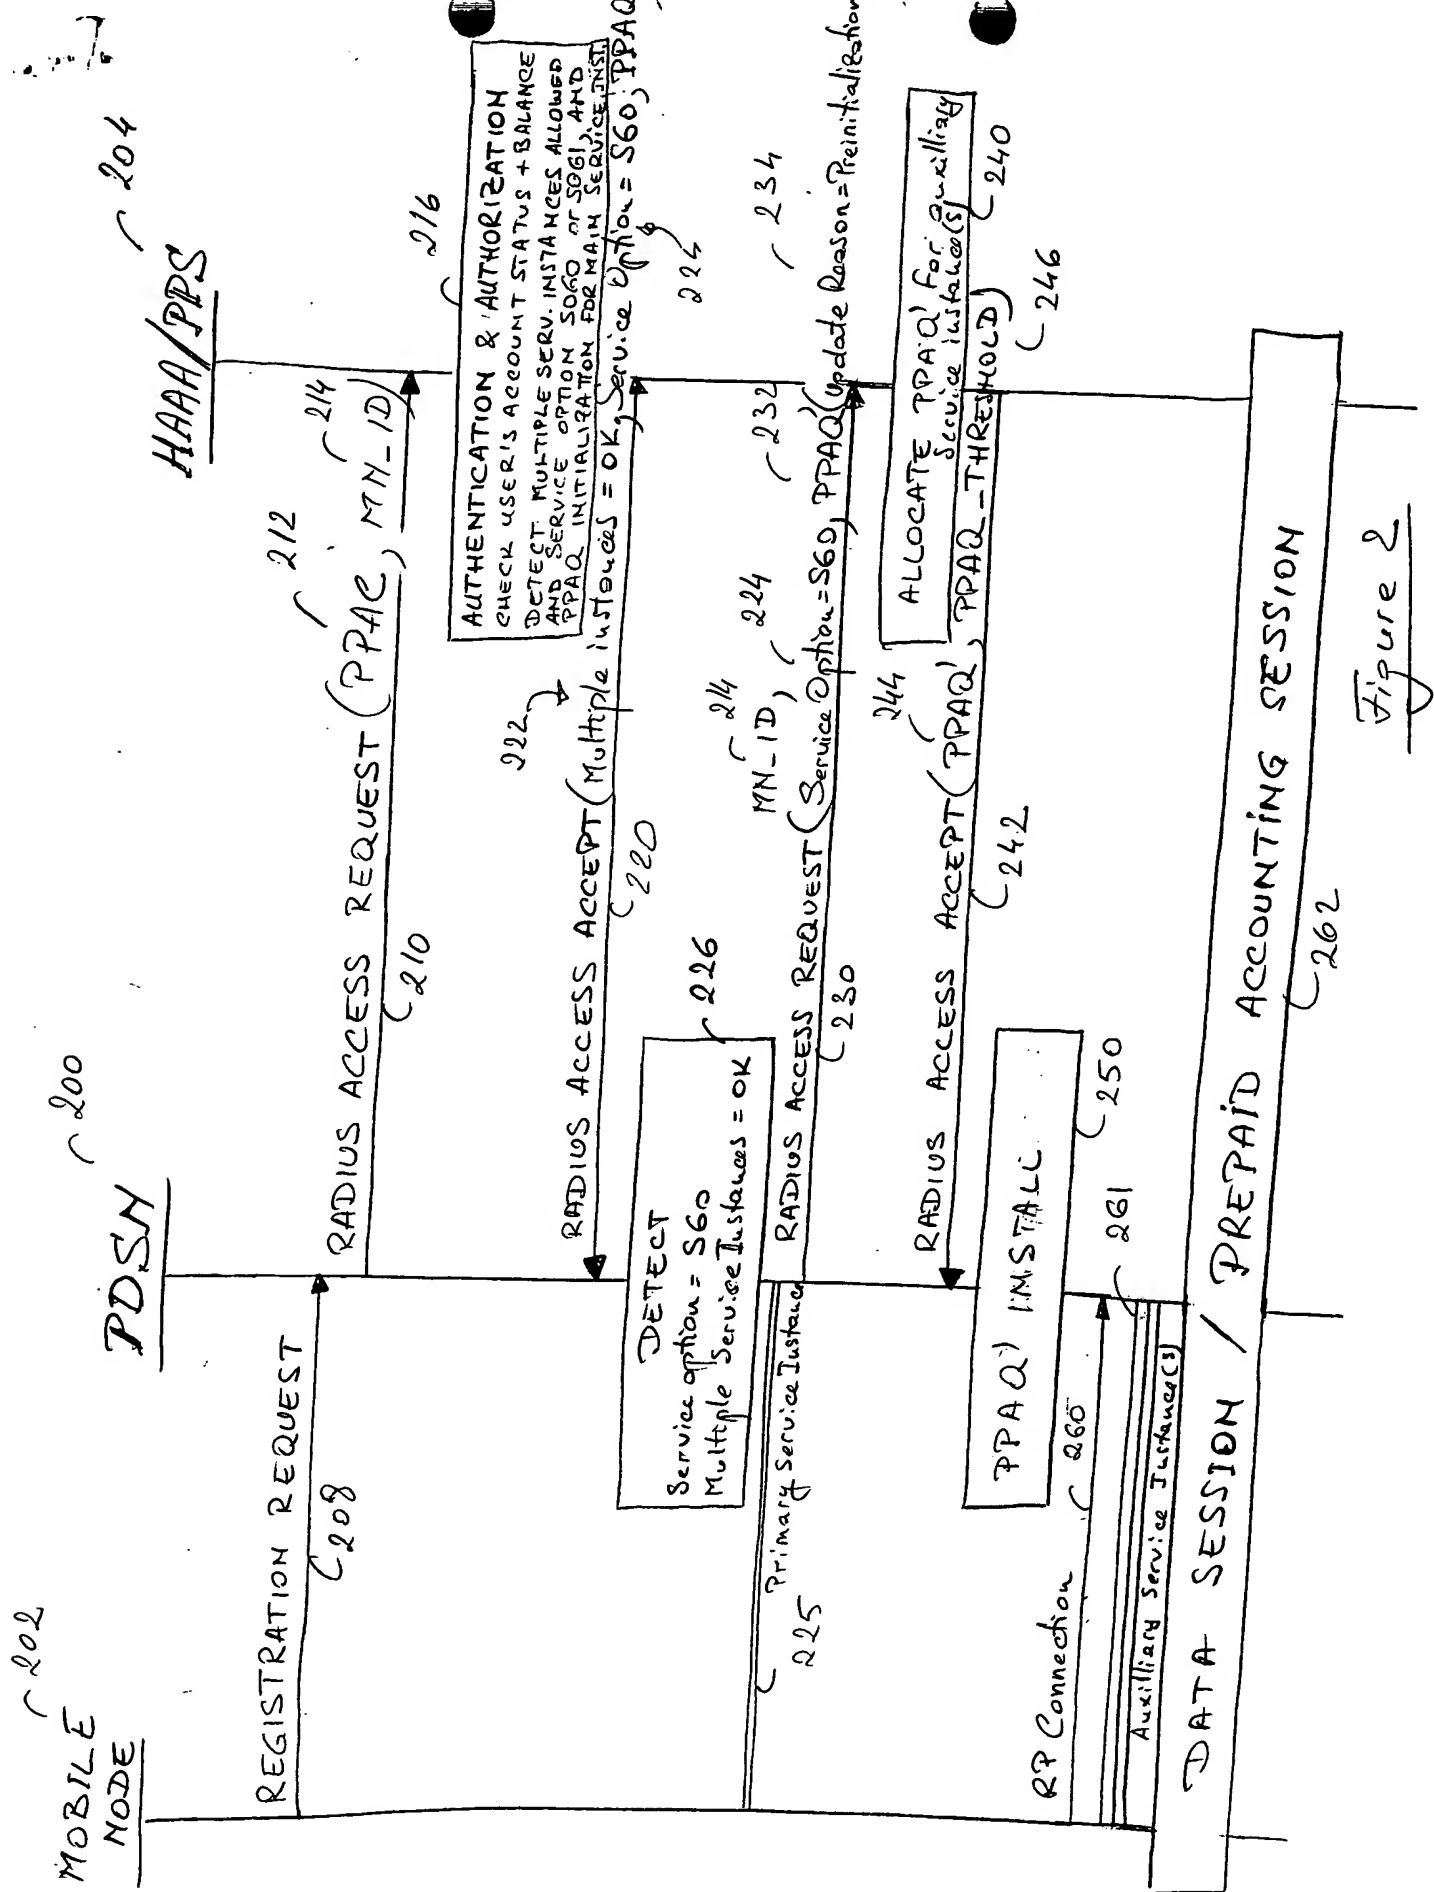 MOBILE
NODE
202
PDSN
200
HAAA/PPS
204
REGISTRATION REQUEST
208
RADIUS ACCESS REQUEST (PPAC, MN_ID)
210
212
214
216
AUTHENTICATION & AUTHORIZATION
CHECK USER'S ACCOUNT STATUS + BALANCE
DETECT MULTIPLE SERV. INSTANCES ALLOWED
AND SERVICE OPTION SO60 or SO61, AND
PPAQ INITIALIZATION FOR MAIN SERVICE INST.
RADIUS ACCESS ACCEPT (Multiple instances = OK, Service Option = S60, PPAQ
220
222
224
DETECT
Service option = S60
Multiple Service Instances = OK
226
Primary Service Instance
225
MN_ID,
214
224
232
234
RADIUS ACCESS REQUEST (Service Option=S60, PPAQ' (Update Reason=Preinitialization
230
ALLOCATE PPAQ' for auxilliary
Service instance(s)
240
RADIUS ACCESS ACCEPT (PPAQ', PPAQ_THRESHOLD)
242
244
246
PPAQ' INSTALL
250
RP Connection
260
261
Auxilliary Service Instance(s)
DATA SESSION / PREPAID ACCOUNTING SESSION
262
Figure 2